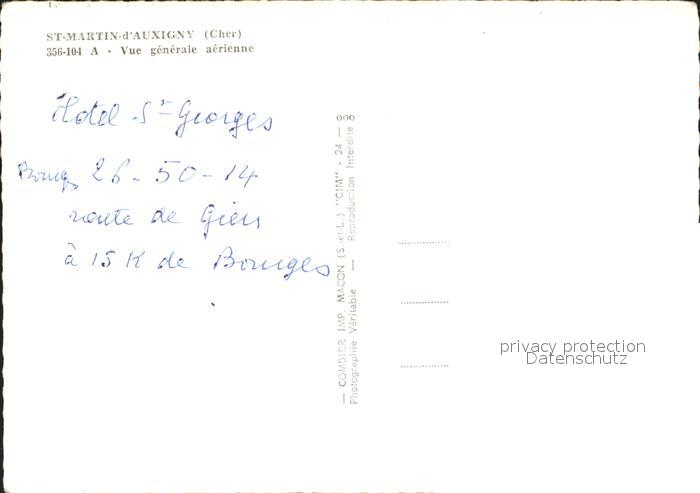 ST-MARTIN-d'AUXIGNY (Cher)
356-104 A - Vue générale aérienne
Hotel St Georges
Bourges 26-50-14
route de Gien
à 15 K de Bourges
— COMBIER IMP. MACON (S.-et-L.) "CIM" - 24 — 090
Photographie Véritable — Reproduction Interdite
privacy protection
Datenschutz